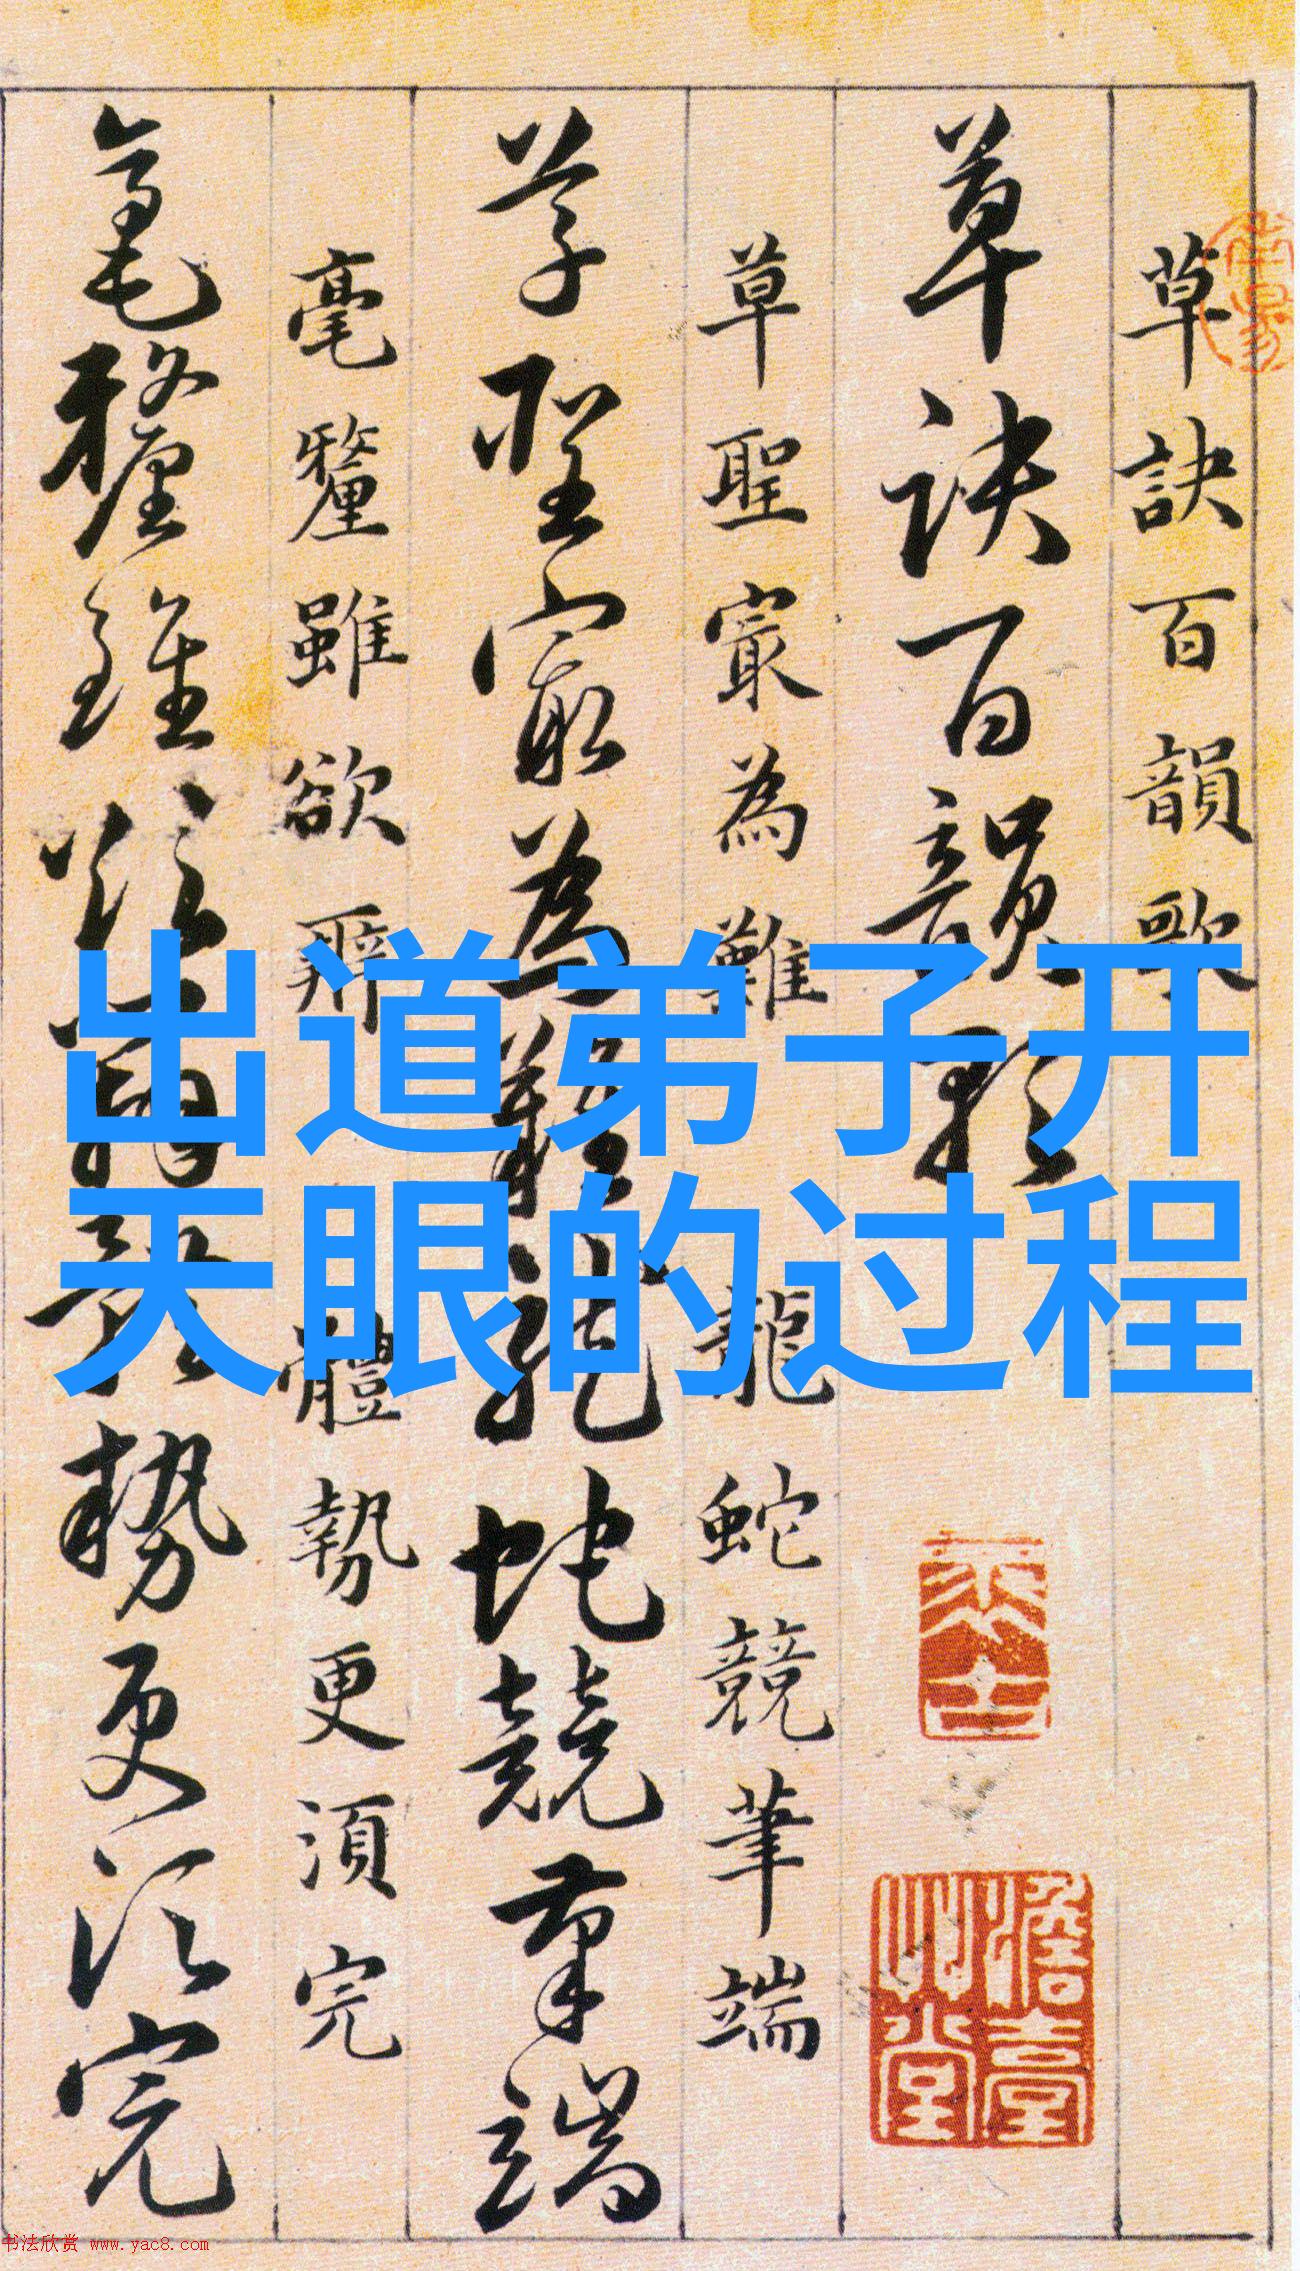 草訣百韻歌
草訣百韻歌
草聖寂為難 龍蛇競筆端
草聖寂為難龍蛇競筆端
毫釐雖欲辨 體勢更須完
毫釐雖欲辨體勢更須完
出道弟子开
天眼的过程
书法欣赏 www.yac8.com